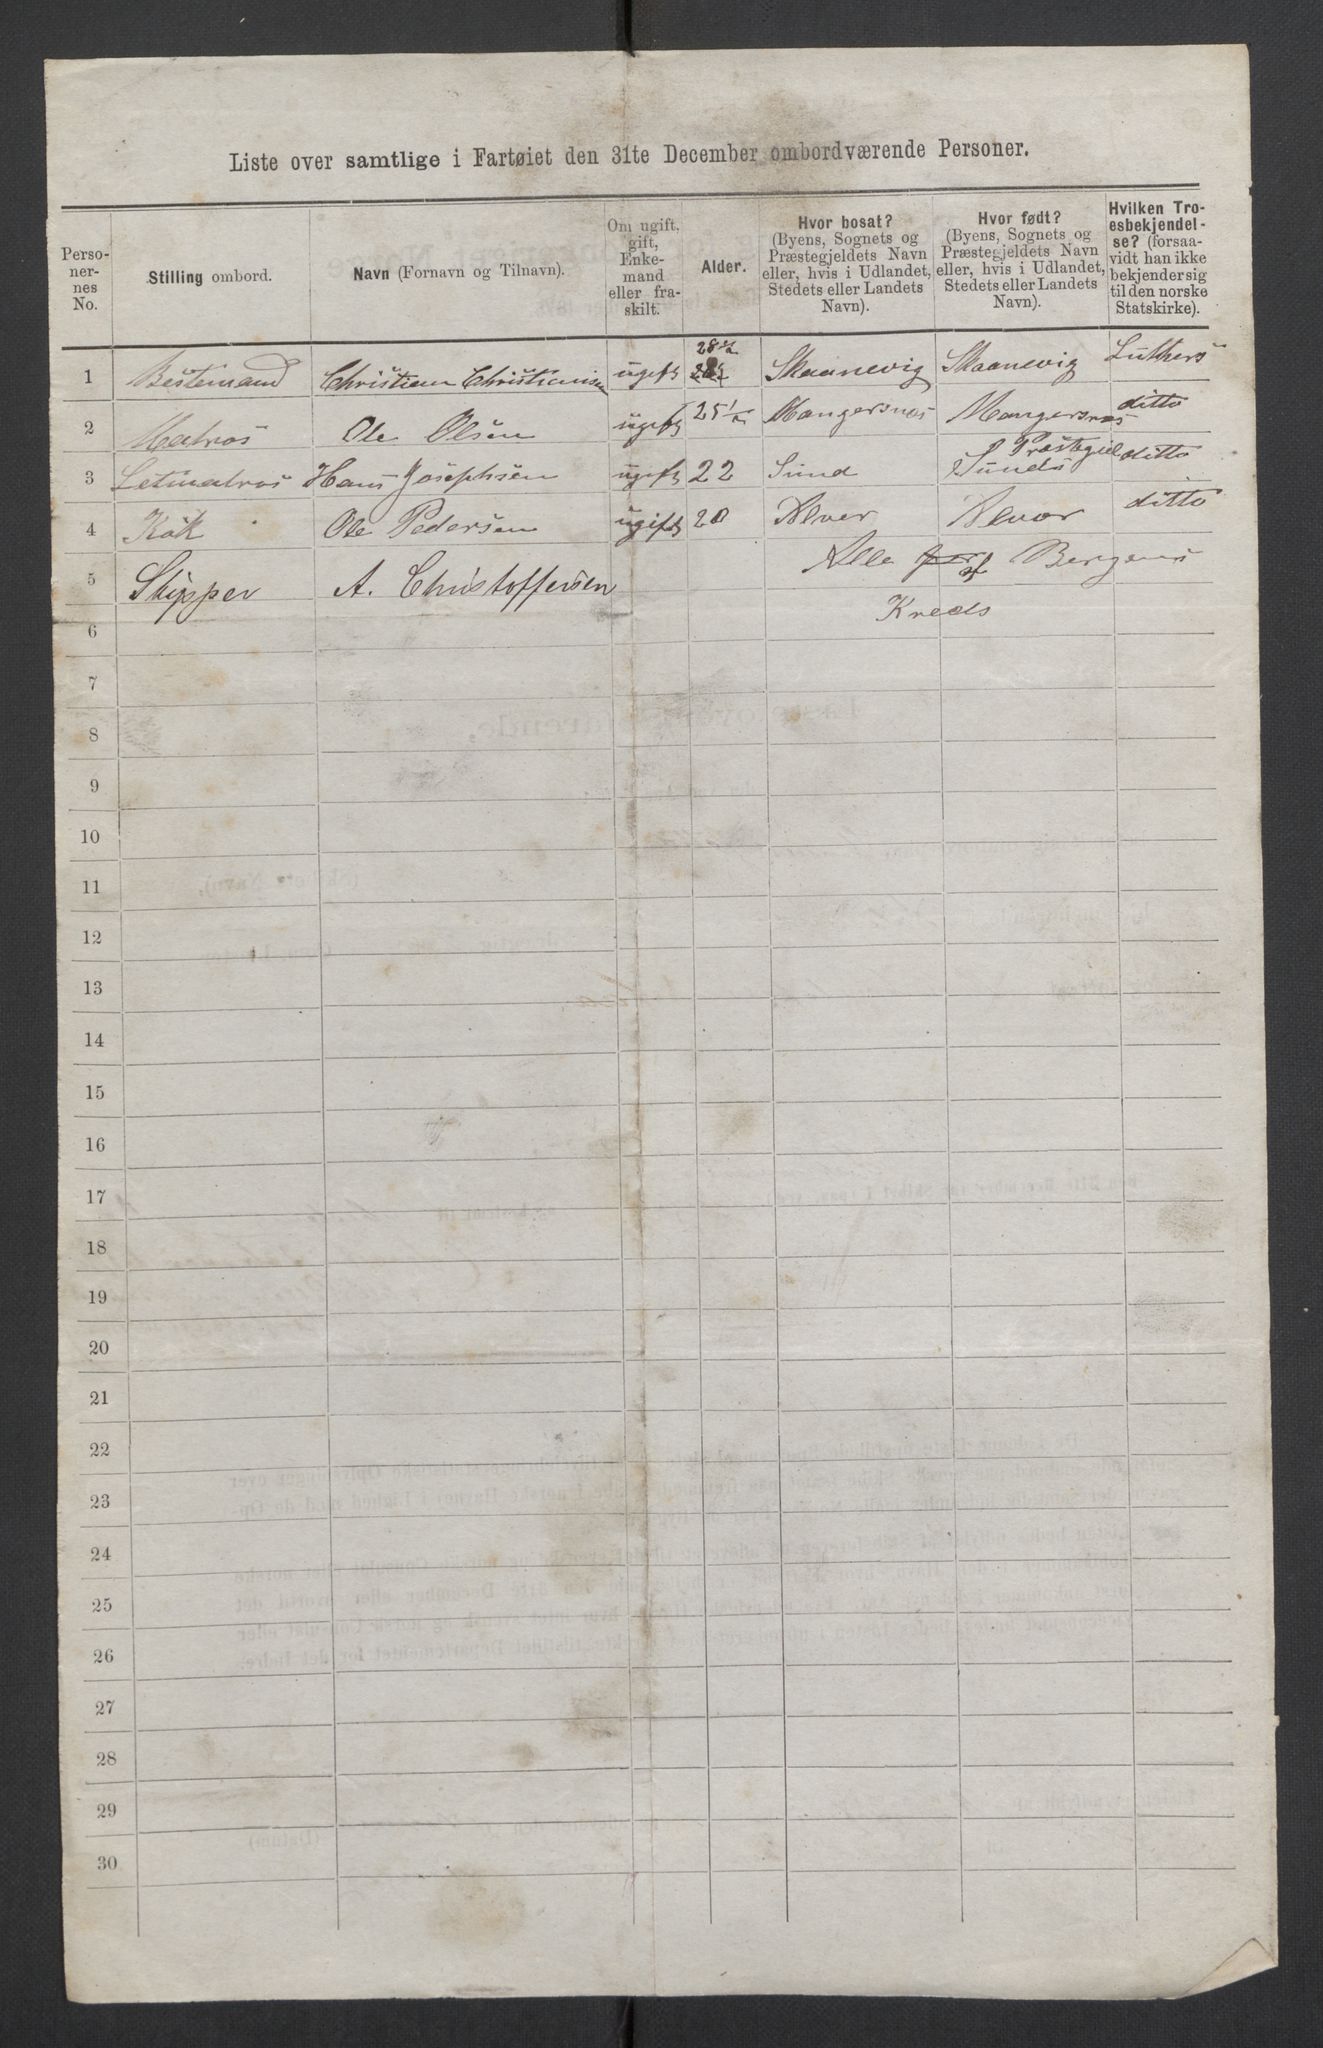 Liste over samtlige i Fartøiet den 31te December ombordværende Personer.
Perso-
ner-
nes
No.
Stilling ombord.
Navn (Fornavn og Tilnavn).
Om ugift,
gift,
Enke-
mand
eller fra-
skilt.
Alder.
Hvor bosat?
(Byens, Sognets og
Præstegjeldets Navn
eller, hvis i Udlandet,
Stedets eller Landets
Navn).
Hvor født?
(Byens, Sognets og
Præstegjeldets Navn
eller, hvis i Udlandet,
Stedets eller Landets
Navn).
Hvilken Tro-
esbekjendel-
se? (forsaa-
vidt han ikke
bekjender sig
til den norske
Statskirke).
1 Bestemand Christian Christiansen ugift 28 1/2 Skaanevig Skaanevig Luthers
2 Matros Ole Olsen ugift 25 1/2 Mangersnæs Mangersnæs ditto
3 Letmatros Hans Josephsen ugift 22 Sund Sunds Præstegiel ditto
4 Kok Ole Pedersen ugift 20 Alver Alver ditto
5 Skipper A. Christoffersen Alle af Bergens
Kreds
6
7
8
9
10
11
12
13
14
15
16
17
18
19
20
21
22
23
24
25
26
27
28
29
30